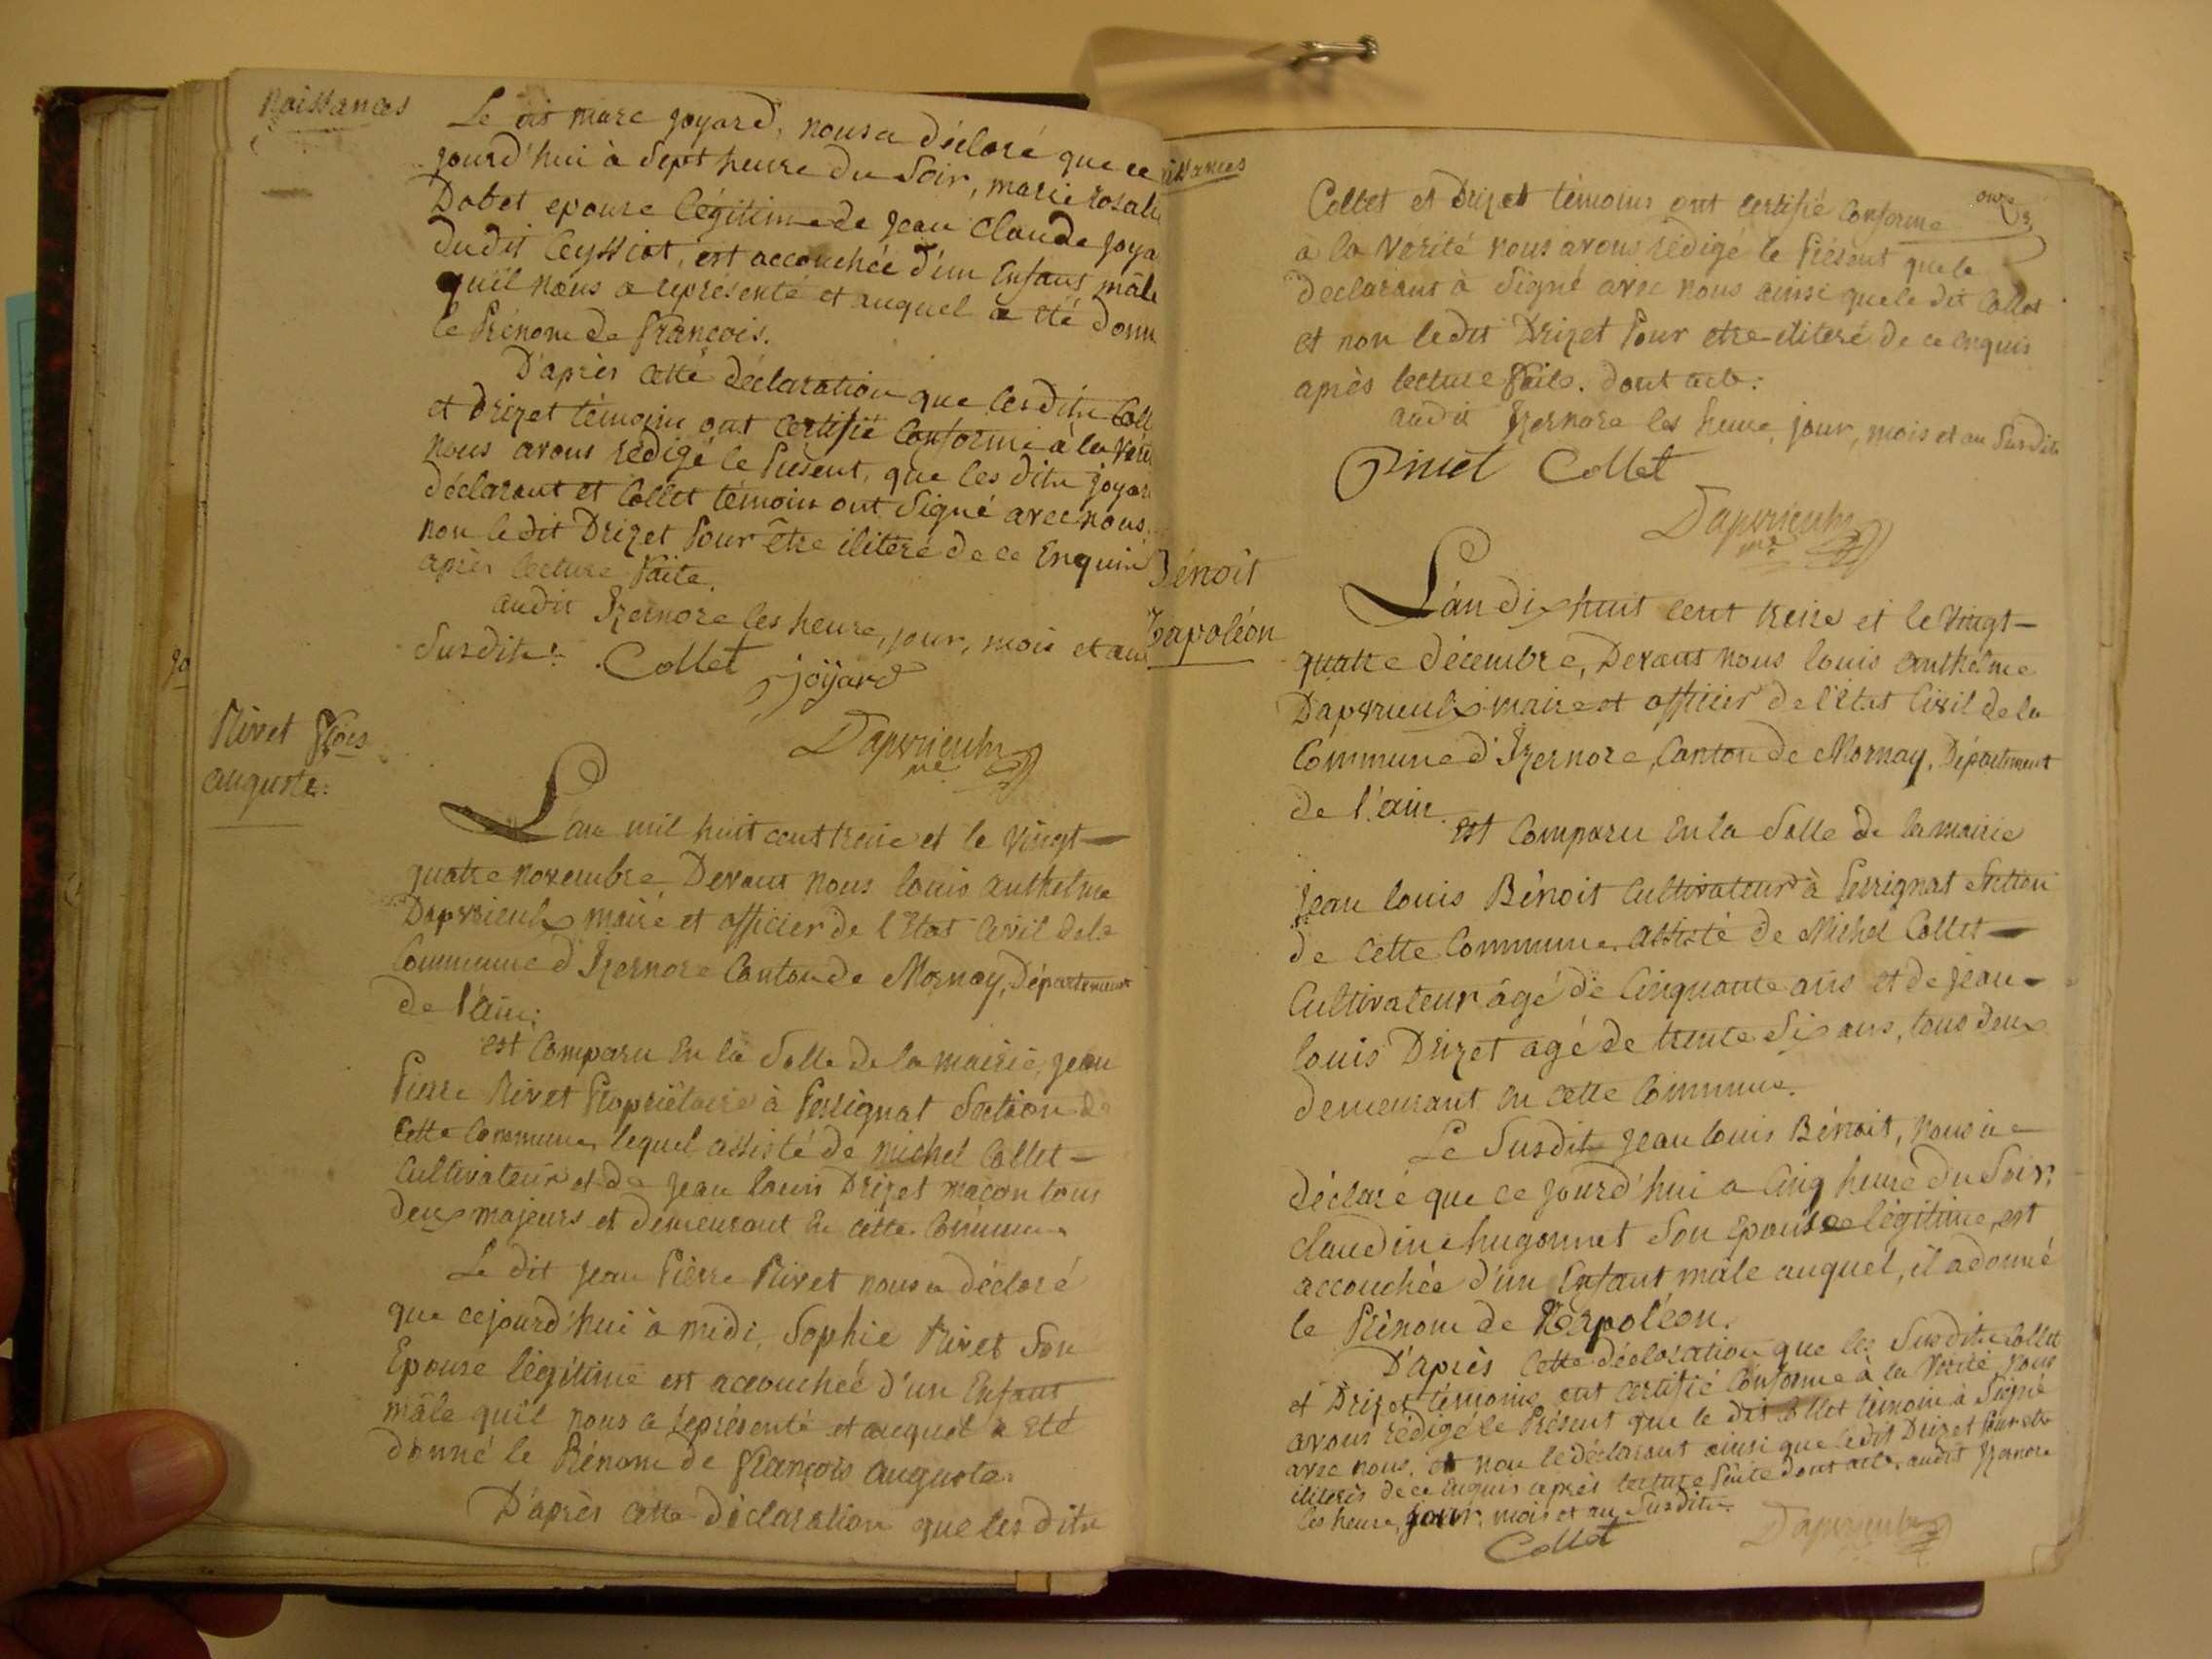 Naissances
Le dit marc joyard, nous a déclaré que ce
jourd'hui à Sept heure du Soir, marie rosalie
Dobet epouse légitime de jean Claude joya
dudit Ceyssiat, est accouchée d'un Enfant mâle
qu'il nous a représenté et auquel a été donn
le Prénom de François.
D'après cette déclaration que les dits Coll
et Drizet témoins ont certifié conforme à la Véri
nous avons rédigé le Présent, que les dits joyar
déclarant et Collet témoin ont Signé avec nous,
non le dit Drizet Pour être iliteré de ce Enquis
après lecture Faite.
audit Izernore les heure, jour, mois et an
Susdits. Collet joÿard
Daprvieulx
me
Rivet Fçois
auguste:
L'an mil huit cent treize et le Vingt-
quatre novembre, Devant nous louis anthelme
Daprvieulx maire et officier de l'Etat Civil de la
Commune d'Izernore Canton de Mornay, Département
de l'ain:
est Comparu En la Salle de la mairie, jean
Pierre Rivet Propriétaire à Perrignat Section de
Cette Commune, lequel assisté de michel Collet -
Cultivateur et de jean louis Drizet maçon tous
deux majeurs et demeurant En cette Commune
Le dit jean Pierre Rivet nous a déclaré
que cejourd'hui à midi, Sophie Rivet Son
Epouse légitime est accouchée d'un Enfant
mâle qu'il nous a représenté et auquel a été
donné le Prénom de François auguste.
D'après cette déclaration que les dits
issances
onze
Collet et Drizet témoins ont certifié Conforme
à la Vérité nous avons rédigé le Présent que le
déclarant à Signé avec nous ainsi que le dit Collet
et non ledit Drizet Pour etre iliteré de ce enquis
après lecture Faite. dont acte.
audit Izernore les heure, jour, mois et an Susdits
Rivet Collet
Daprvieulx
me
Bénoit
Napoléon
L'an dix huit cent treize et le Vingt-
quatre décembre, Devant nous louis anthelme
Daprvieulx maire et officier de l'Etat Civil de la
Commune d'Izernore, Canton de Mornay, Département
de l'ain.
Est Comparu En la Salle de la mairie
jean louis Bénoit Cultivateur à Perrignat Section
de cette Commune, assisté de Michel Collet -
Cultivateur âgé de Cinquante ans et de jean-
louis Drizet agé de trente Six ans, tous deux
demeurant En cette Commune.
Le Susdit jean louis Bénoit, nous a
déclaré que ce jourd'hui a Cinq heure du Soir,
claudine hugonnet Son épouse légitime, est
accouchée d'un Enfant mâle auquel, il a donné
le Prénom de Napoléon.
D'après Cette déclaration que les Susdits Collet
et Drizet témoins ont certifié Conforme à la Vérité, nous
avons rédigé le Présent que le dit Collet témoin à Signé
avec nous, et non le déclarant ainsi que ledit Drizet Pour etre
iliterés de ce Enquis après lecture Faite dont acte, audit Izernore
les heure, jour, mois et an Susdits.
Collet Daprvieulx